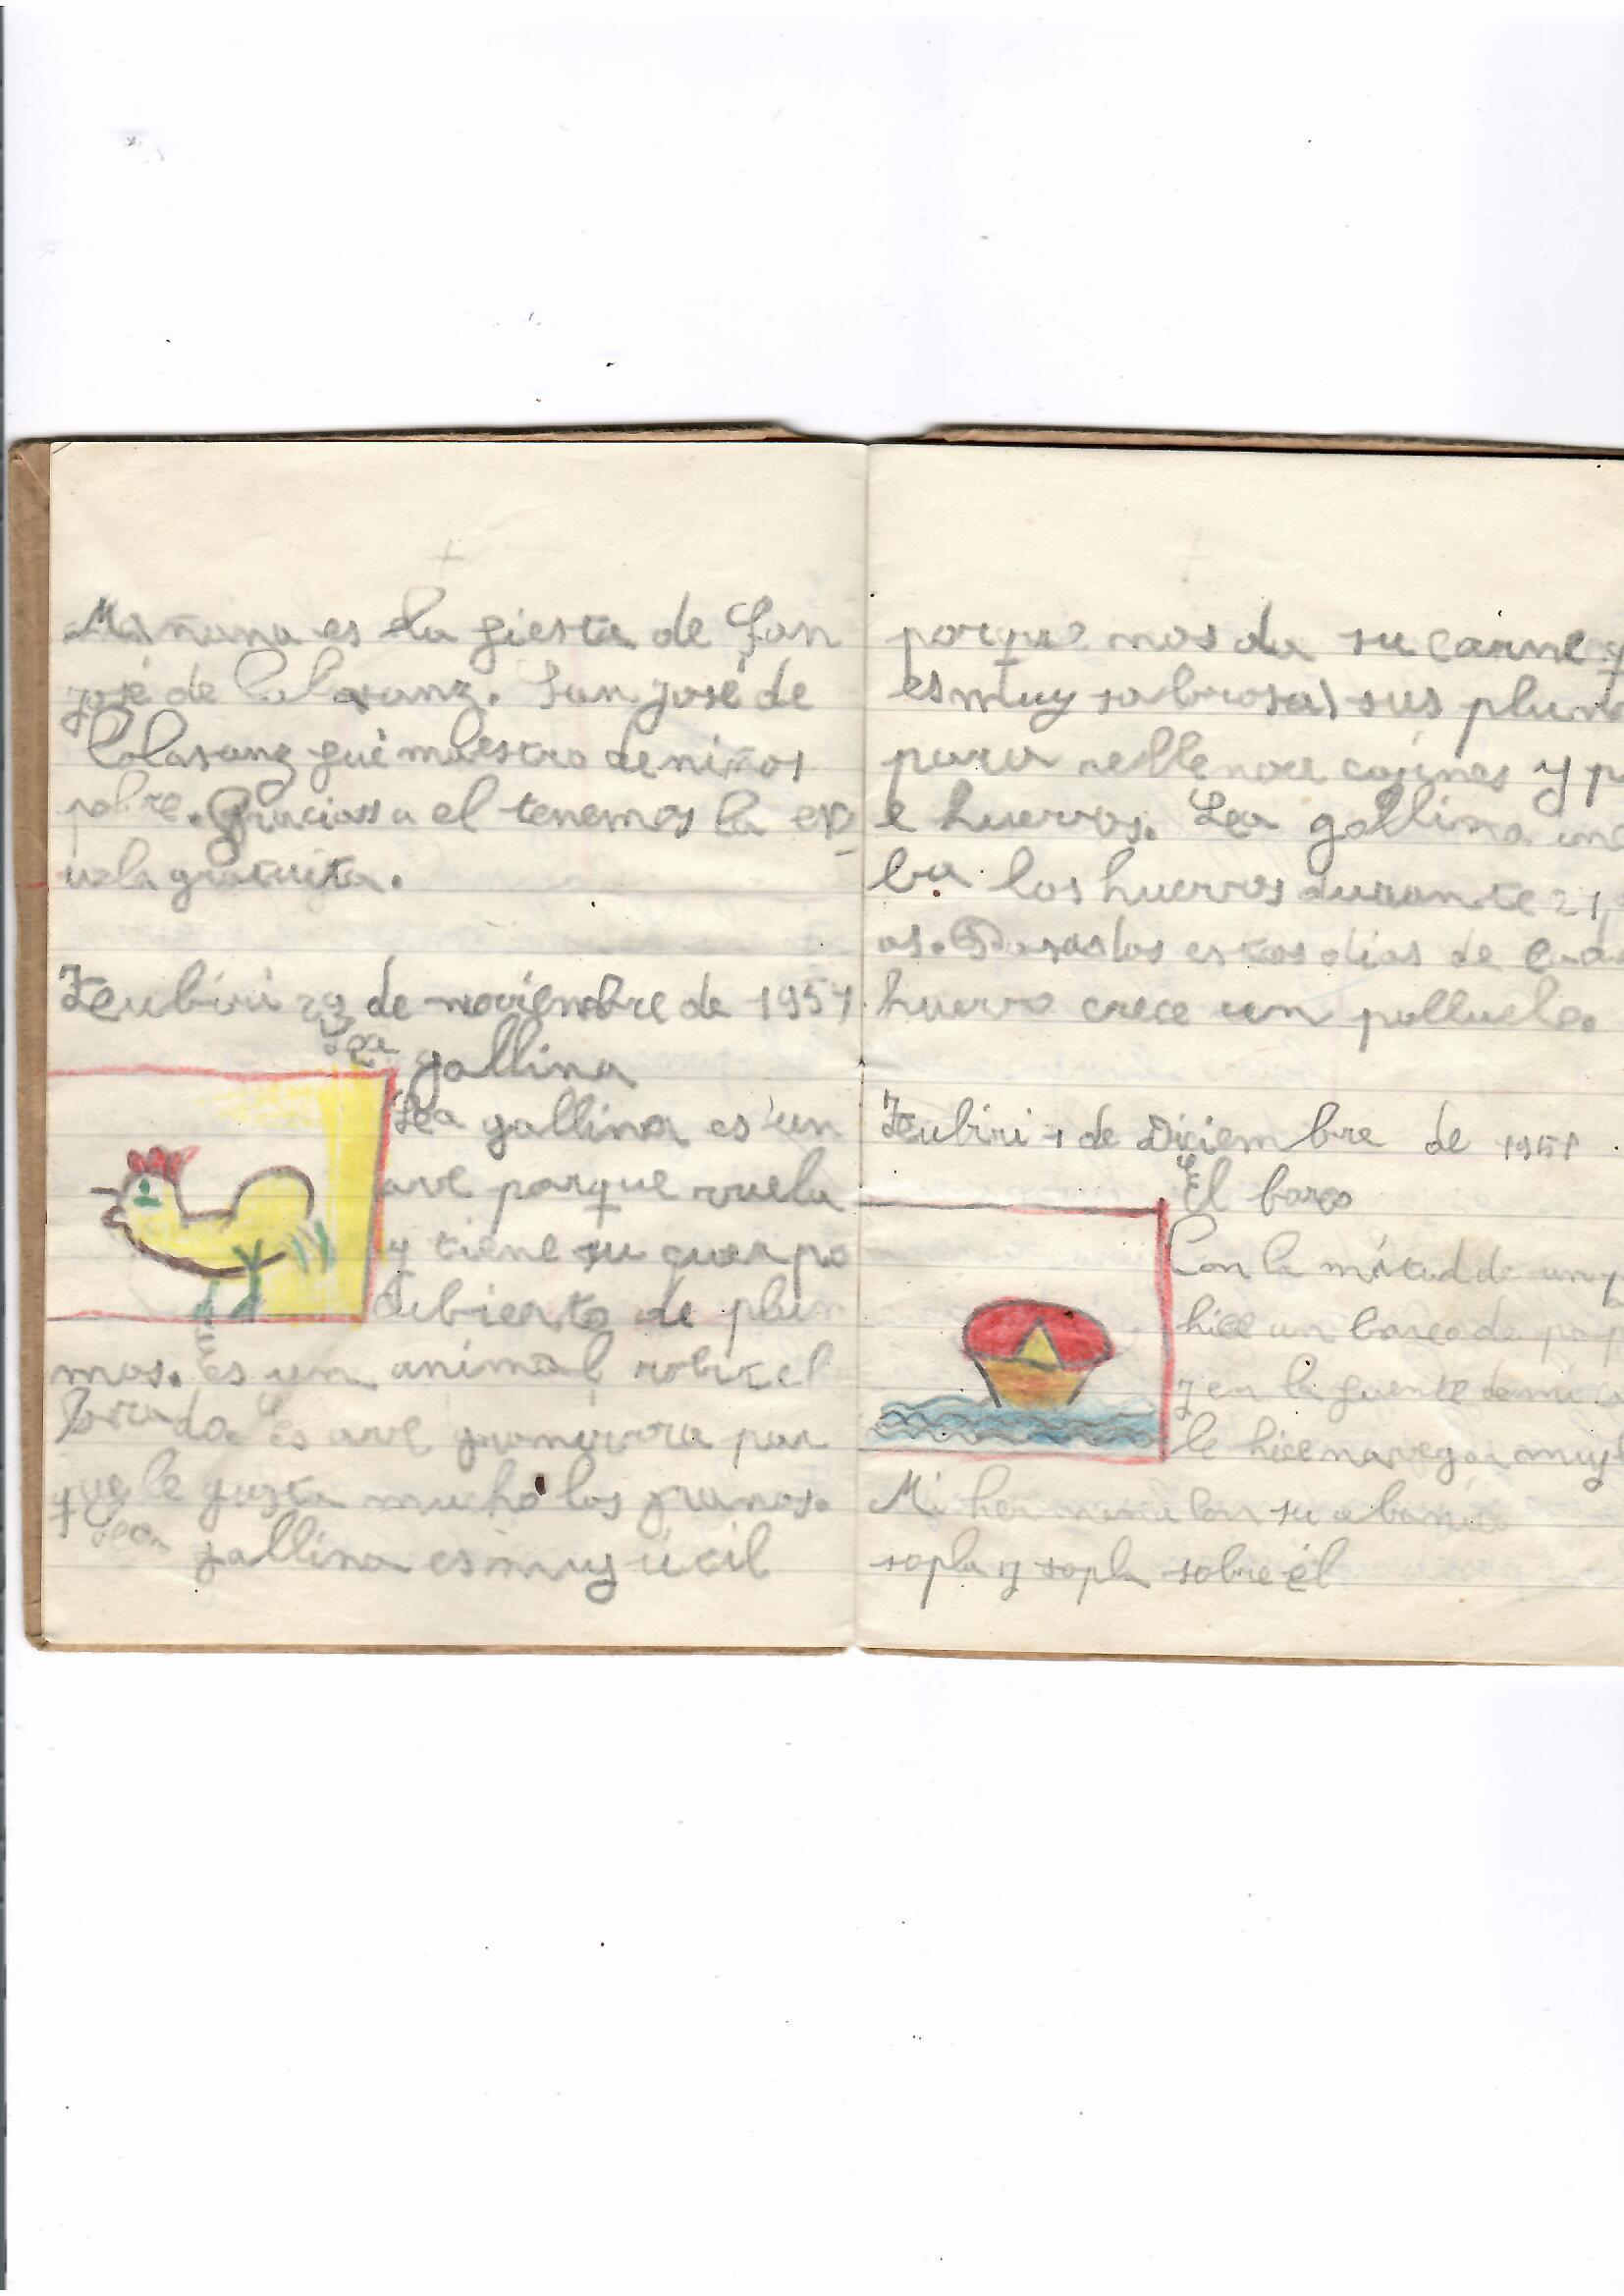 Mañana es la fiesta de San
josé de Calasanz. San josé de
Calasanz fué maestro de niños
pobre. Gracias a el tenemos la es
uela gratuita.
Zubiri 29 de noviembre de 1951
La gallina
La gallina es un
ave porque vuela
y tiene su cuerpo
cubierto de plum
mas. es un animal
Es ave granívora por
que le gusta mucho los granos.
La gallina es muy útil
porque nos da su carne y
es muy sabrosa, sus plum
para rellenar cojines y p
e huevos. La gallina inc
ba los huevos durante 21
as. Pasados estos dias de cada
huevo crece un polluelo.
Zubiri 1 de Diciembre de 1951
El barco
Con la mitad de un p
hice un barco de pap
y en la fuente de mi ca
le hice navegar muy
Mi hermana con su abanico
sopla y sopla sobre él